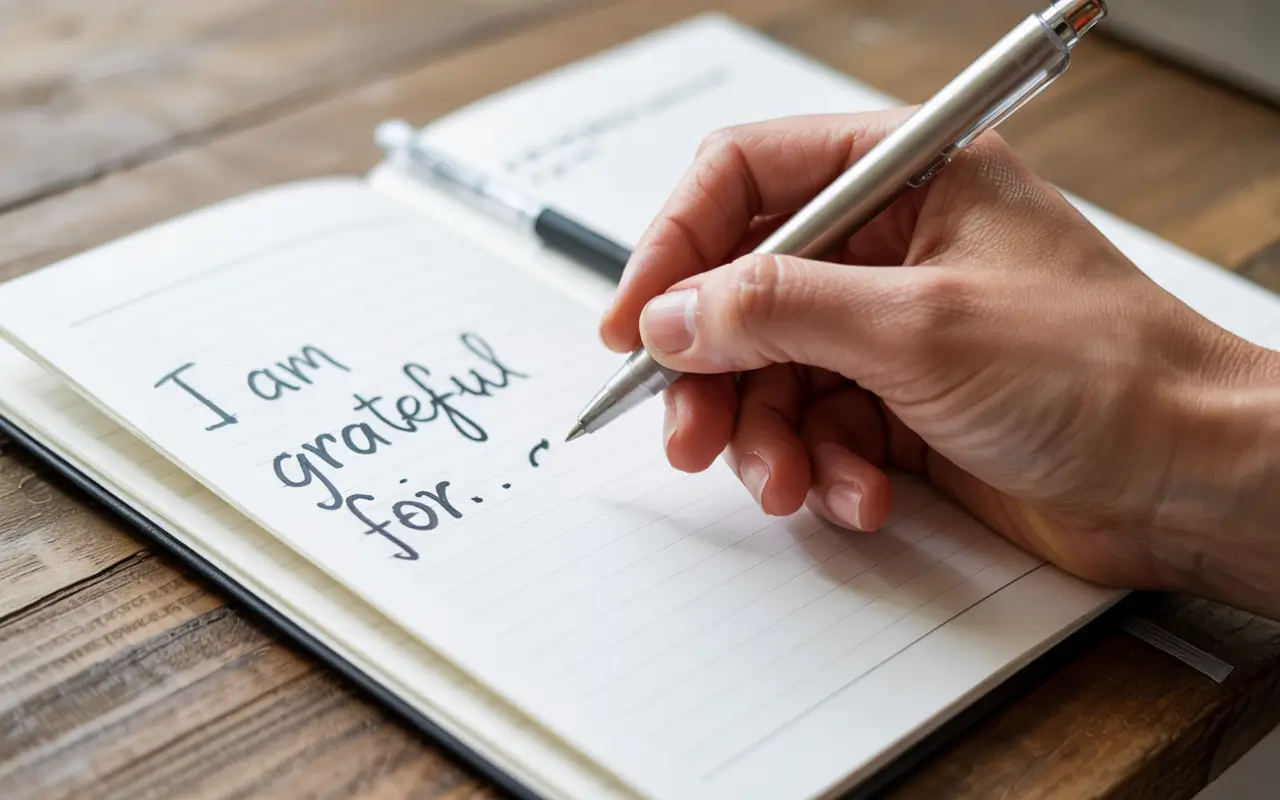 I am
grateful
for...